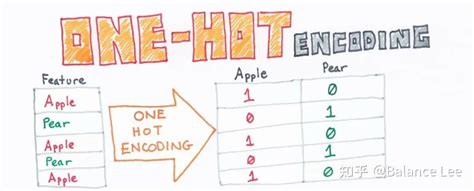 ONE-HOT ENCODING
Feature
Apple
Pear
Apple
Pear
Apple
ONE
HOT
ENCODING
Apple Pear
1 0
0 1
1 0
0 1
1 0
知乎 @Balance Lee